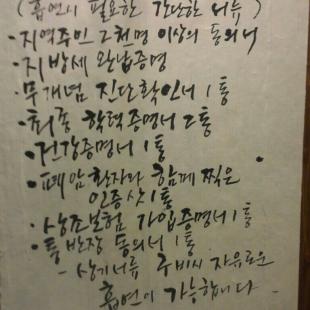 (흡연시 필요한 간단한 서류)
·지역주민 2천명 이상의 동의서
·지방세 완납증명
·무개념 진단확인서 1통
·최종 학력증명서 2통
·건강증명서 1통
·폐암환자와 함께 찍은
인증샷 1통
·상조보험 가입증명서 1통
·통 반장 동의서 1통
- 상기서류 구비시 자유로운
흡연이 가능합니다